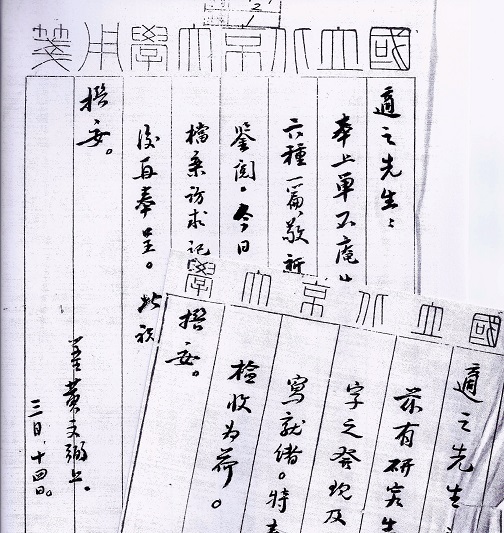 國立北京大學用箋
適之先生：
奉上單不庵
六種一篇，敬祈
鑒閱。今日
檔案訪求記
後再奉呈。此祝
撰安。
黃文弼上。
十四日。
國立北京大學
適之先生
茲有研究生
字之發現及
寫就緒。特
檢收为荷。
撰安。